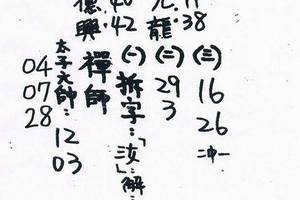 德興:42
龍:38
禪師
(一)拆字:「汝」:解:
(二)
29
3
(三)
16
26
二中一
太子元帥:12
03
04
07
28